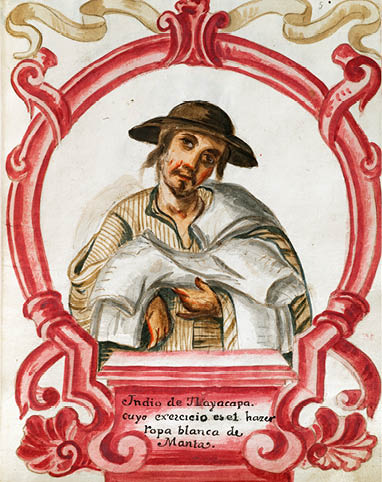 5
Indio de Tlayacapa.
cuyo exercicio es el hazer
ropa blanca de
Manta.